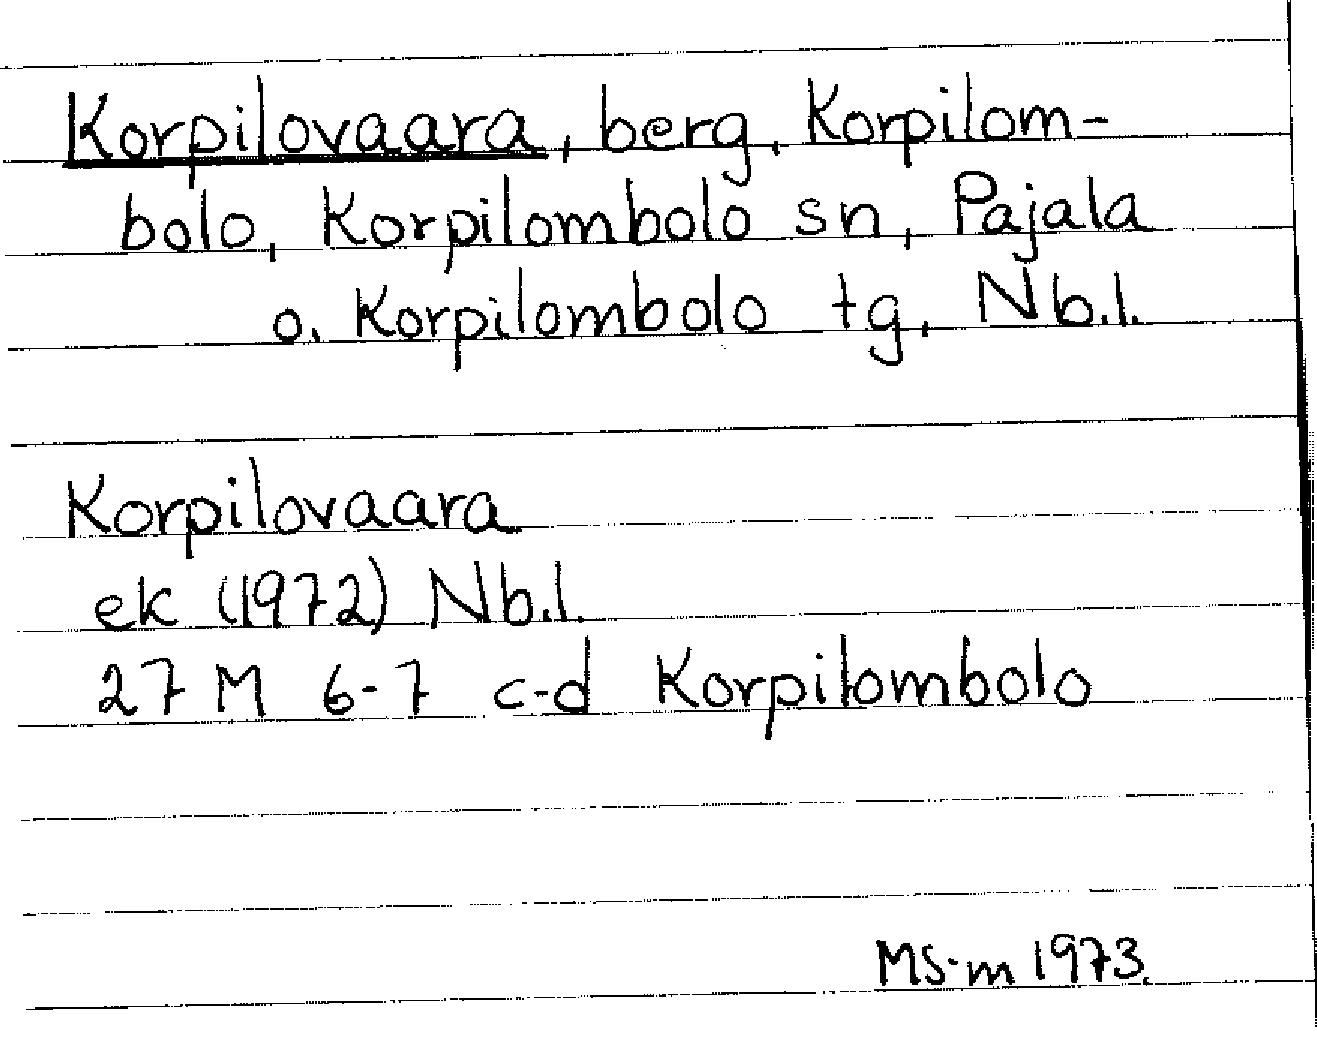 Korpilovaara, berg, Korpilom-
bolo, Korpilombolo sn, Pajala
o. Korpilombolo tg, Nb.l.
Korpilovaara
ek (1972) Nb.l.
27 M 6-7 c-d Korpilombolo
MS-m 1973.